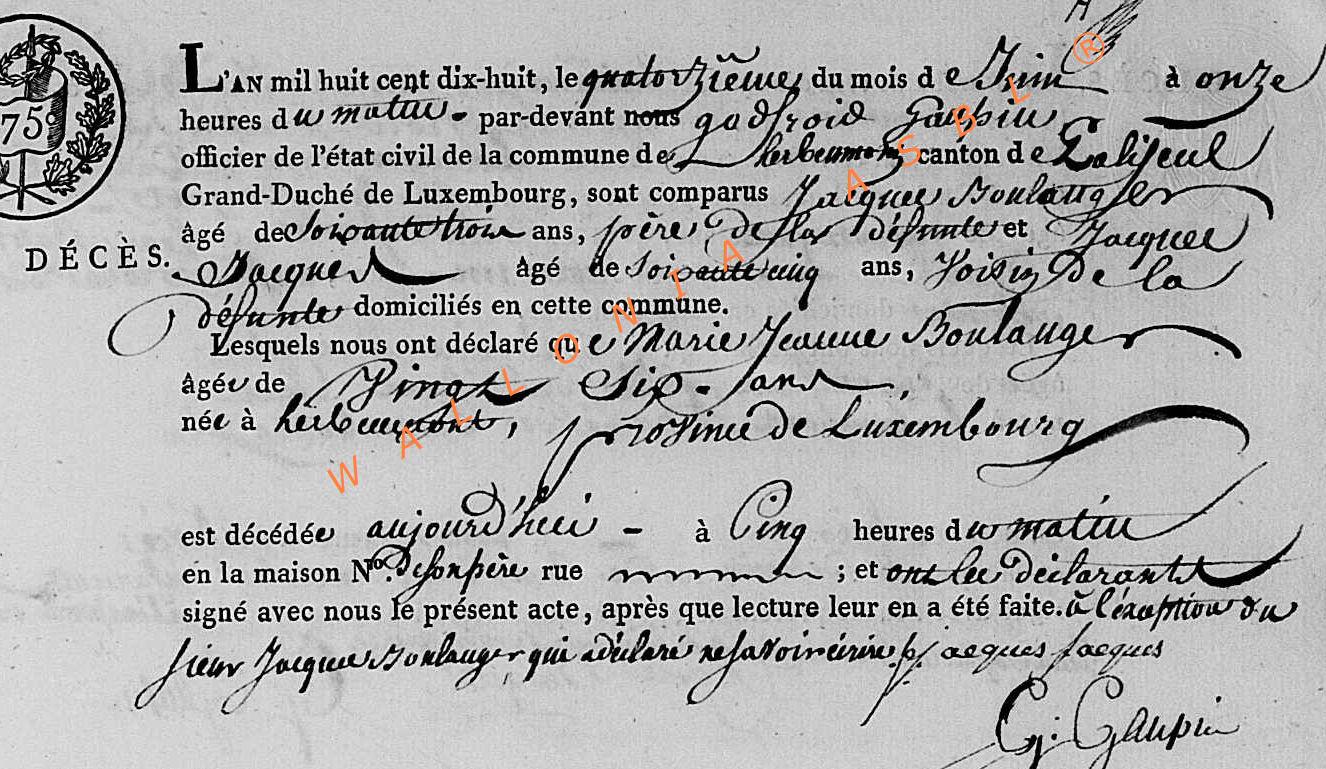 L'AN mil huit cent dix-huit, le quatorzième du mois de Juin à onze
75
heures du matin - par-devant nous godfroid Gaupin
officier de l'état civil de la commune de herbeumont canton de Paliseul
Grand-Duché de Luxembourg, sont comparus Jacques Boulanger
âgé de soixante trois ans, père de la défunte et Jacques
DÉCÈS.
Jacques âgé de soixante cinq ans, Voisin De la
défunte domiciliés en cette commune.
Lesquels nous ont déclaré que Marie Jeanne Boulanger
âgée de Vingt Six ans
née à herbeumont, province de Luxembourg
est décédée aujourd'hui - à Cinq heures du matin
en la maison No. De son père rue ; et ont les déclarants
signé avec nous le présent acte, après que lecture leur en a été faite. à l'exception du
sieur Jacques Boulanger qui a déclaré ne savoir écrire jacques jacques
G: Gaupin
WALLONIA ASBL ®